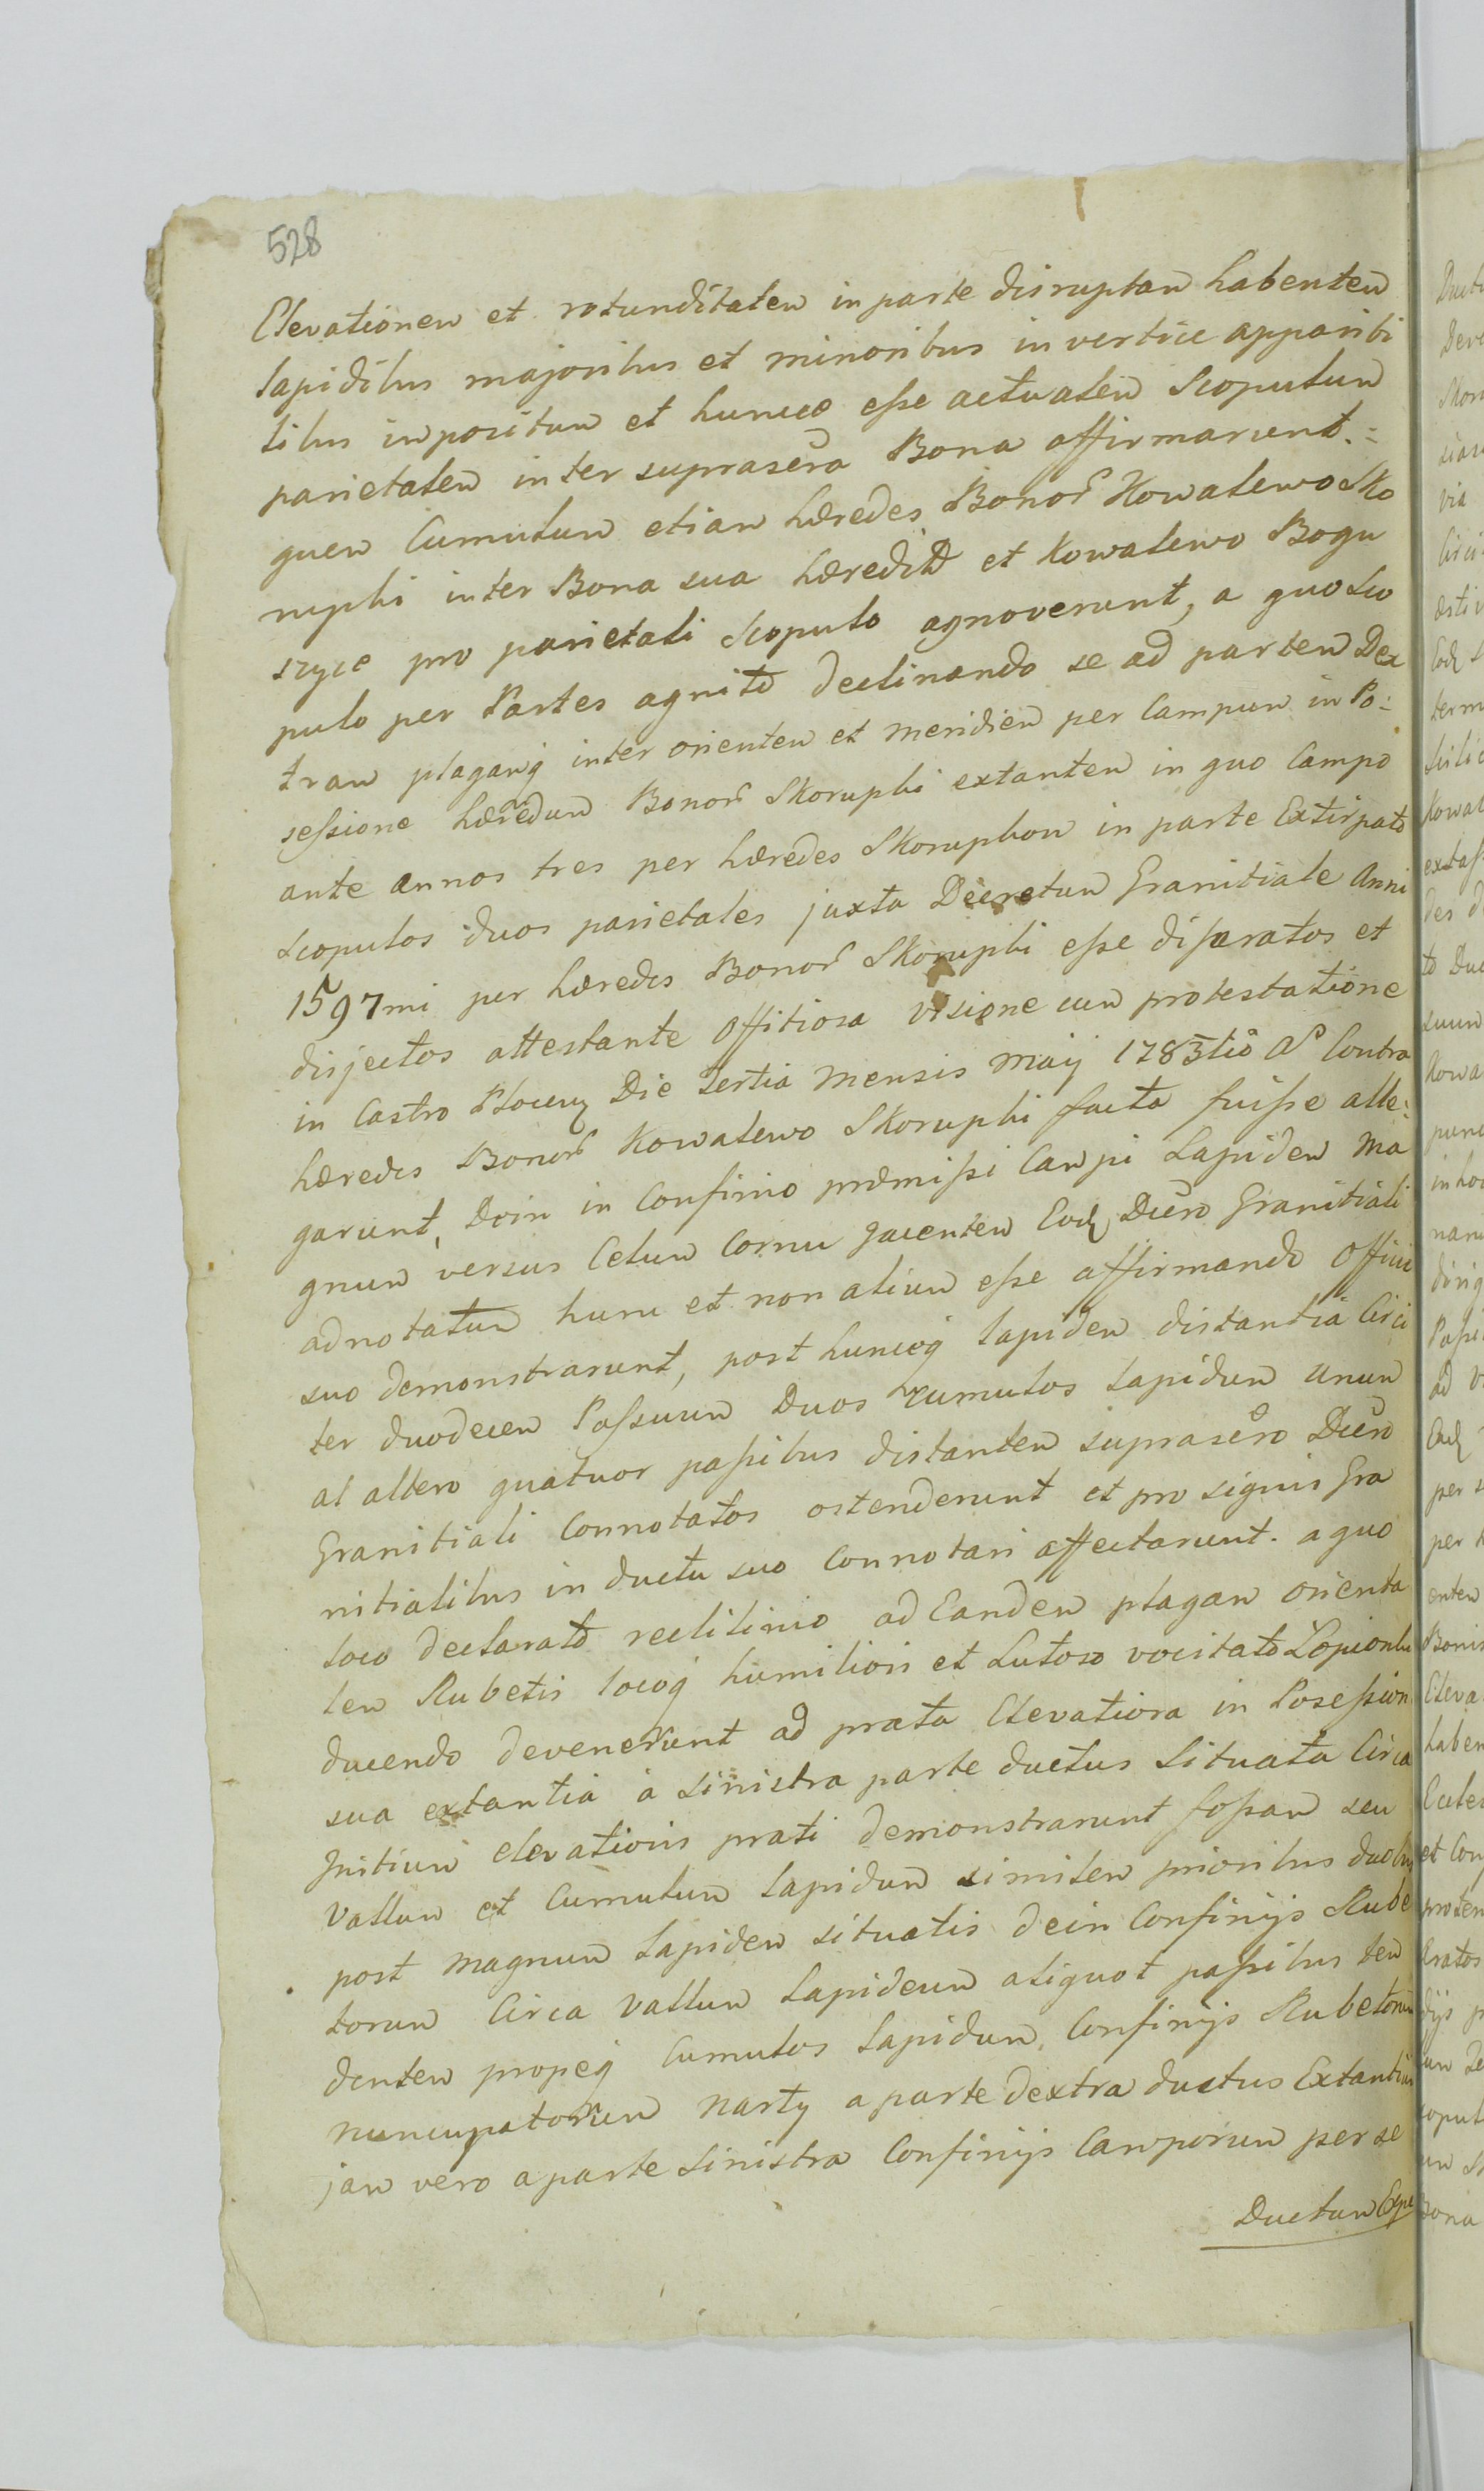 528
Elevationem et rotunditatem in parte disruptam habentem
lapidibus majoribus et minoribus in vertice apparibi
libus impositum et huncce esse actualem Scopulum
parietalem inter suprascra Bona affirmarunt.=
quem Cumulum etiam hæredes Bonor Kowalewo Sko
rupki inter Bona sua hæredit et Kowalewo Bogu
szyce pro parietali Scopulo agnoverunt, a quo Sco
pulo per Partes agnito declinando se ad partem Dex
tram plagamq inter orientem et meridiem per Campum in Po:
sessione hæredum Bonor Skorupki extantem in quo Campo
ante annos tres per hæredes Skorupkow in parte Extirpato
scopulos duos parietales juxta Decretum Granitiale Anni
1597mi per hæredes Bonor Skorupki esse disparatos et
disjectos attestante offitiosa visione cum protestatione
in Castro Plocen Die tertia mensis maij 1783tio Ao Contra
hæredes Bonor Kowalewo Skorupki facta fuisse alle:
garunt, Dein in Confinio præmissi Campi Lapidem Ma
gnum versus Celum Cornu jacentem Eod Dcro Granitiali
adnotatum hunc et non alium esse affirmando offici
suo demonstrarunt, post huncq lapidem distantia Circi
ter duodecem Passuum Duos cumulos lapidum unum
at altero quatuor passibus distantem suprascro Dcro
Granitiali Connotatos ostenderunt et pro signis Gra
nitialibus in ductu suo Connotari affectarunt. a quo
loco declarato rectilinio ad Eandem plagam orienta
lem Rubetis locoq humiliori et Lutoso vocitato Lopionki
ducendo devenerunt ad prata Elevatiora in Posession
sua extantia a sinistra parte ductus Situata Circa
Initium elevationis prati demonstrarunt fossam seu
Vallum et Cumulum lapidum similem prioribus duobus
post magnum Lapidem situatis dein Confinijs Rube
torum Circa Vallum Lapideum aliquot passibus ten
dentem propeq Cumulos Lapidum, Confinijs Rubetorum
nuncupatorum Narty a parte dextra ductus Extantium
jam vero a parte Sinistra Confinijs Camporum per se
Ductum Expe